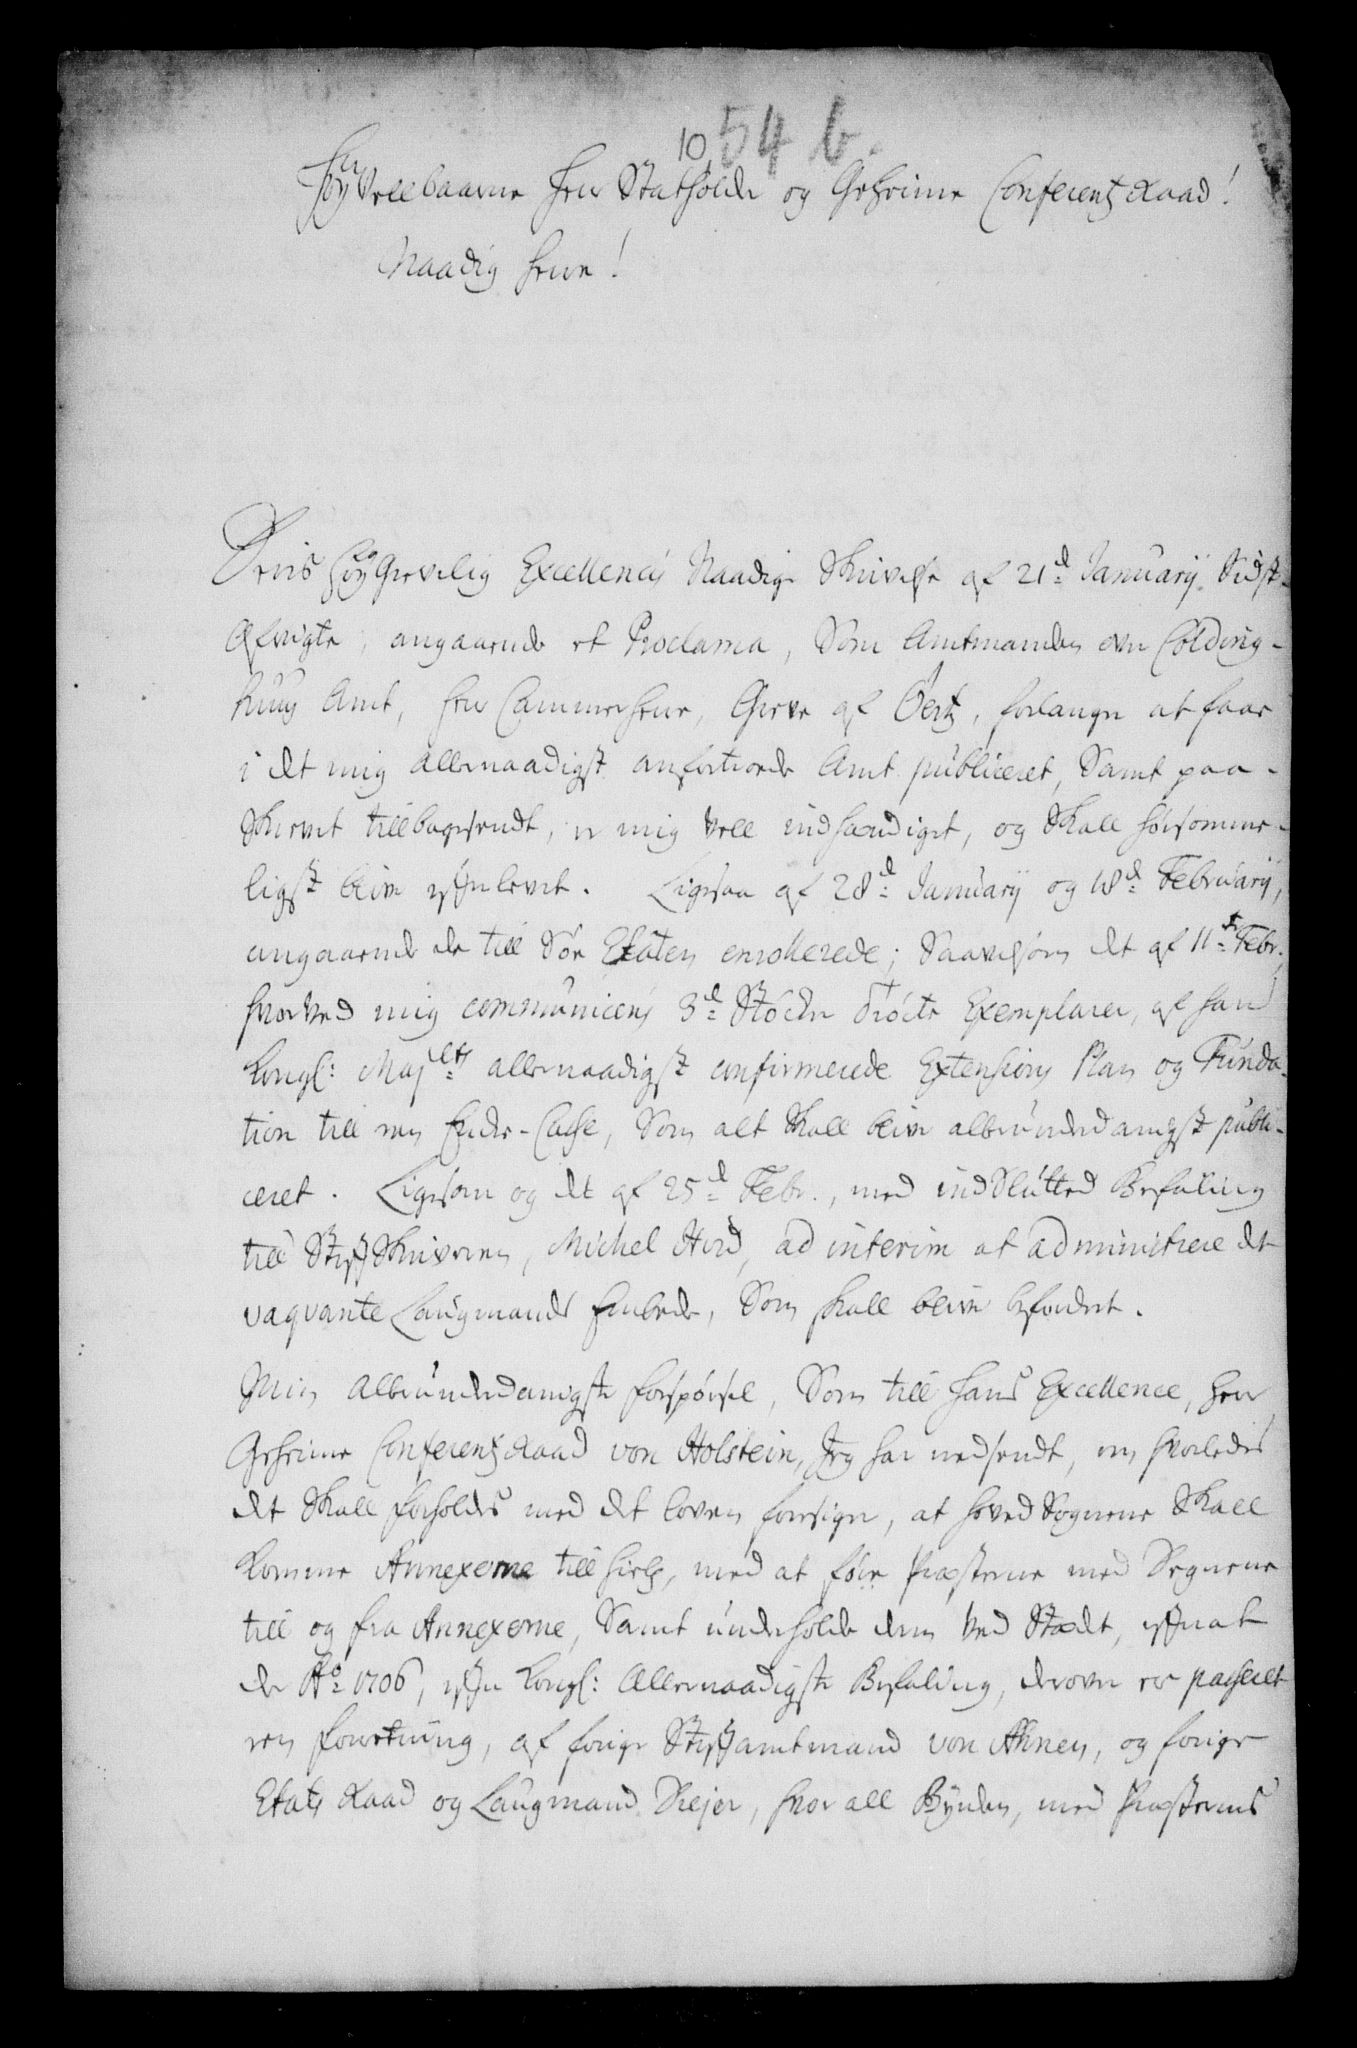 10. 54 b.
HøyVellbaarne Herr Statholder og Geheime Conferentz Raad!
Naadig Herre!
Deris HøyGrevelig Excellences Naadige Skrivelse af 21d January Sidst-
Afvigte, angaaende et Proclama, Som Amtmanden over Colding-
huus Amt, Herr Cammerherre, Greve af Öertz, forlanger at faae
i det mig allernaadigst anfortroede Amt publiceret, Samt paa-
Skrevet tillbagesendt, er mig vell indhændiget, og Skall hørsomme-
ligst blive efterlevet. Ligesaa af 28d January og 18d February,
angaaende de till Søe Etaten enrollerede; Saavelsom det af 11te Febr.,
hvorved mig communiceres 3d Støcker tröcte Exemplarer, af Hans
Kongl: Majets allernaadigst confirmerede Extensions Plan og Funda-
tion till en Encke-Casse, Som alt Skall blive allerunderdanigst publi-
ceret. Ligesom og det af 25d Febr., med indSlutted Befaling
till StiftSkriveren, Michel Hvid, ad interim at administrere det
vaqvante Laugmands Embede, Som skall blive befordret.
Min allerunderdanigste forspørsel, Som till Hans Excellence, Herr
Geheime Conferentz Raad von Holstein, Jeg har nedsendt, om hvorledes
det Skall forholdes med det loven foresiger, at Hoved Sognene Skall
komme Annexerne till hielp, med at føre Præsterne med Degnene
till og fra Annexerne, Samt underholde dem ved Stædet, efterat
der Ao 1706, efter Kongl: Allernaadigste Befaling, derover er passeret
een forretning, af forige Stiftamtmand von Ahnen, og forige
Etats Raad og Laugmand Drejer, hvor all Bynden, med Præsternes